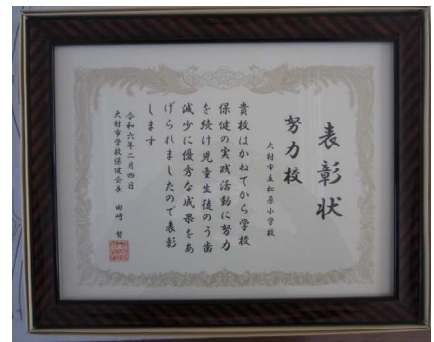 表彰状
努力校
大村市立松原小学校
貴校はかねてから学校
保健の実践活動に努力
を続け児童生徒のう歯
減少に優秀な成果をあ
げられましたので表彰
します
令和六年二月四日
大村市学校保健会長 田崎 賢